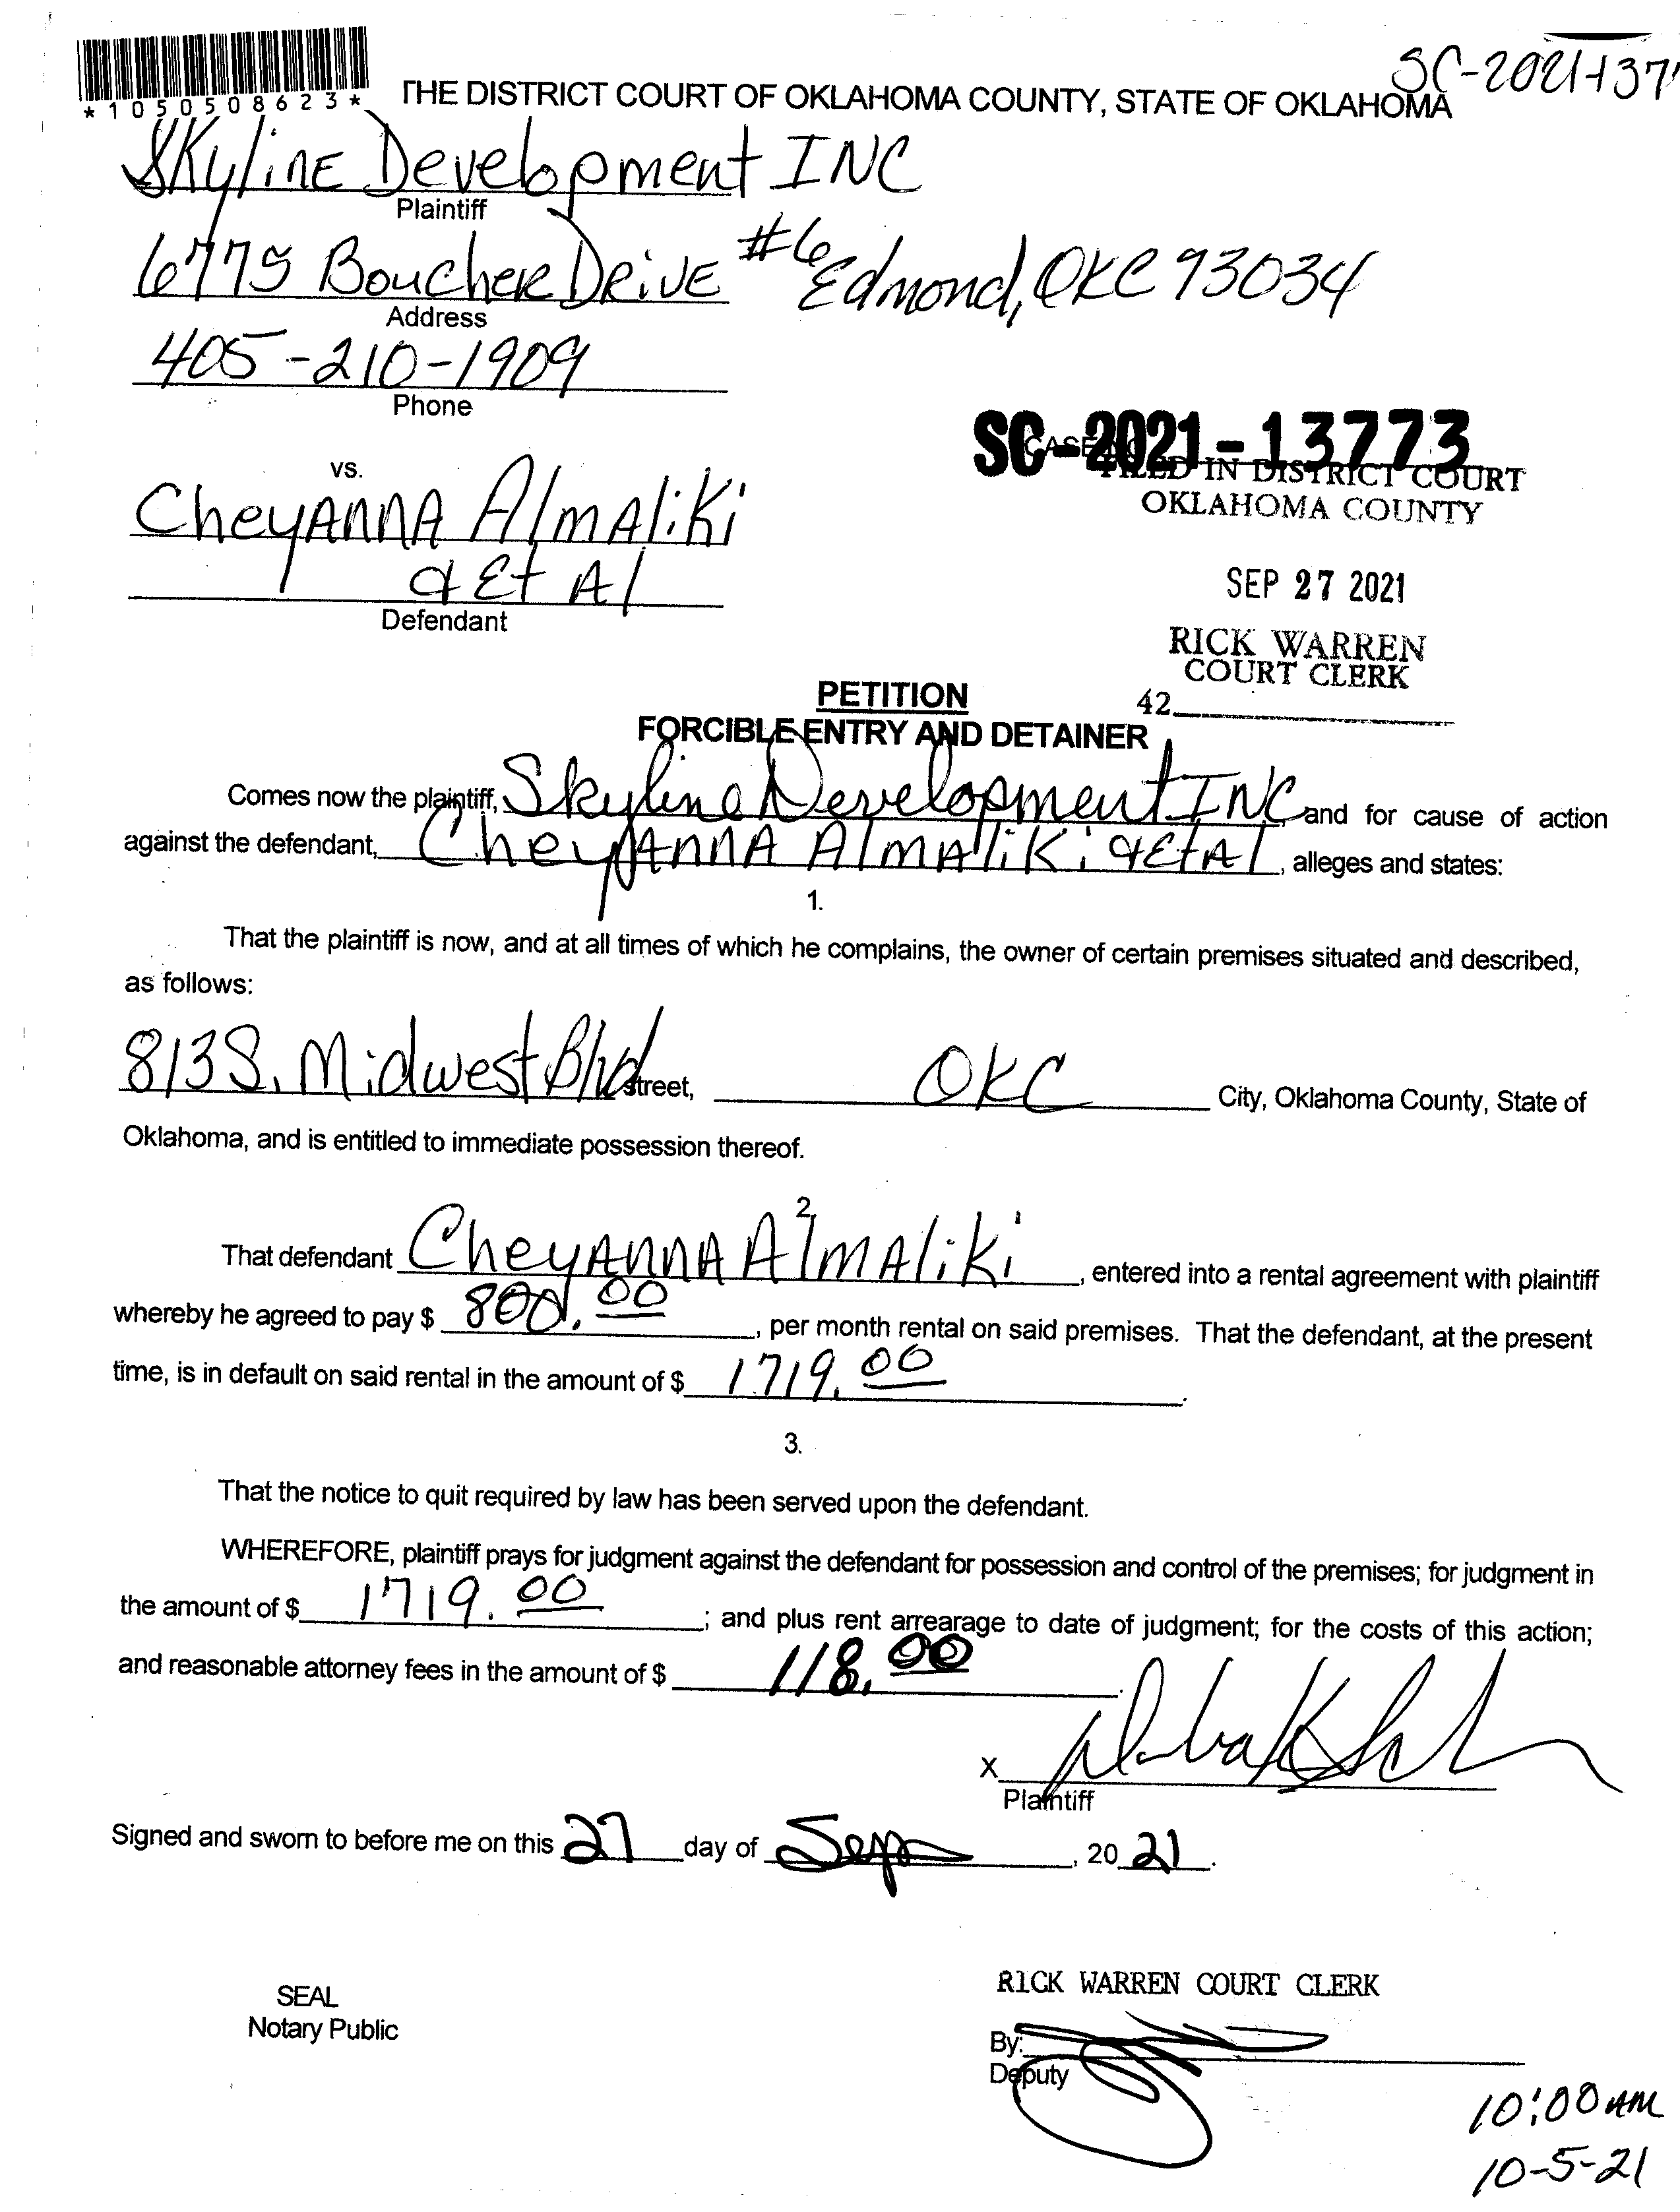 *1050508623*
SC-2021-137
THE DISTRICT COURT OF OKLAHOMA COUNTY, STATE OF OKLAHOMA
Skyline Development INC
Plaintiff
6775 Boucher Drive #6 Edmond, OKC 73034
Address
405-210-1909
Phone
SC-2021-13773
FILED IN DISTRICT COURT
OKLAHOMA COUNTY
vs.
Cheyanna Almaliki
& Et Al
Defendant
SEP 27 2021
RICK WARREN
COURT CLERK
42
PETITION
FORCIBLE ENTRY AND DETAINER
Comes now the plaintiff, Skyline Development INC and for cause of action
against the defendant, Cheyanna Almaliki & Et Al, alleges and states:
1.
That the plaintiff is now, and at all times of which he complains, the owner of certain premises situated and described,
as follows:
813 S. Midwest Blvd street, OKC City, Oklahoma County, State of
Oklahoma, and is entitled to immediate possession thereof.
2.
That defendant Cheyanna Almaliki, entered into a rental agreement with plaintiff
whereby he agreed to pay $ 800.00, per month rental on said premises. That the defendant, at the present
time, is in default on said rental in the amount of $ 1719.00.
3.
That the notice to quit required by law has been served upon the defendant.
WHEREFORE, plaintiff prays for judgment against the defendant for possession and control of the premises; for judgment in
the amount of $ 1719.00; and plus rent arrearage to date of judgment; for the costs of this action;
and reasonable attorney fees in the amount of $ 118.00.
X
Plaintiff
Signed and sworn to before me on this 27 day of Sep, 20 21.
SEAL
Notary Public
RICK WARREN COURT CLERK
By:
Deputy
10:00 AM
10-5-21